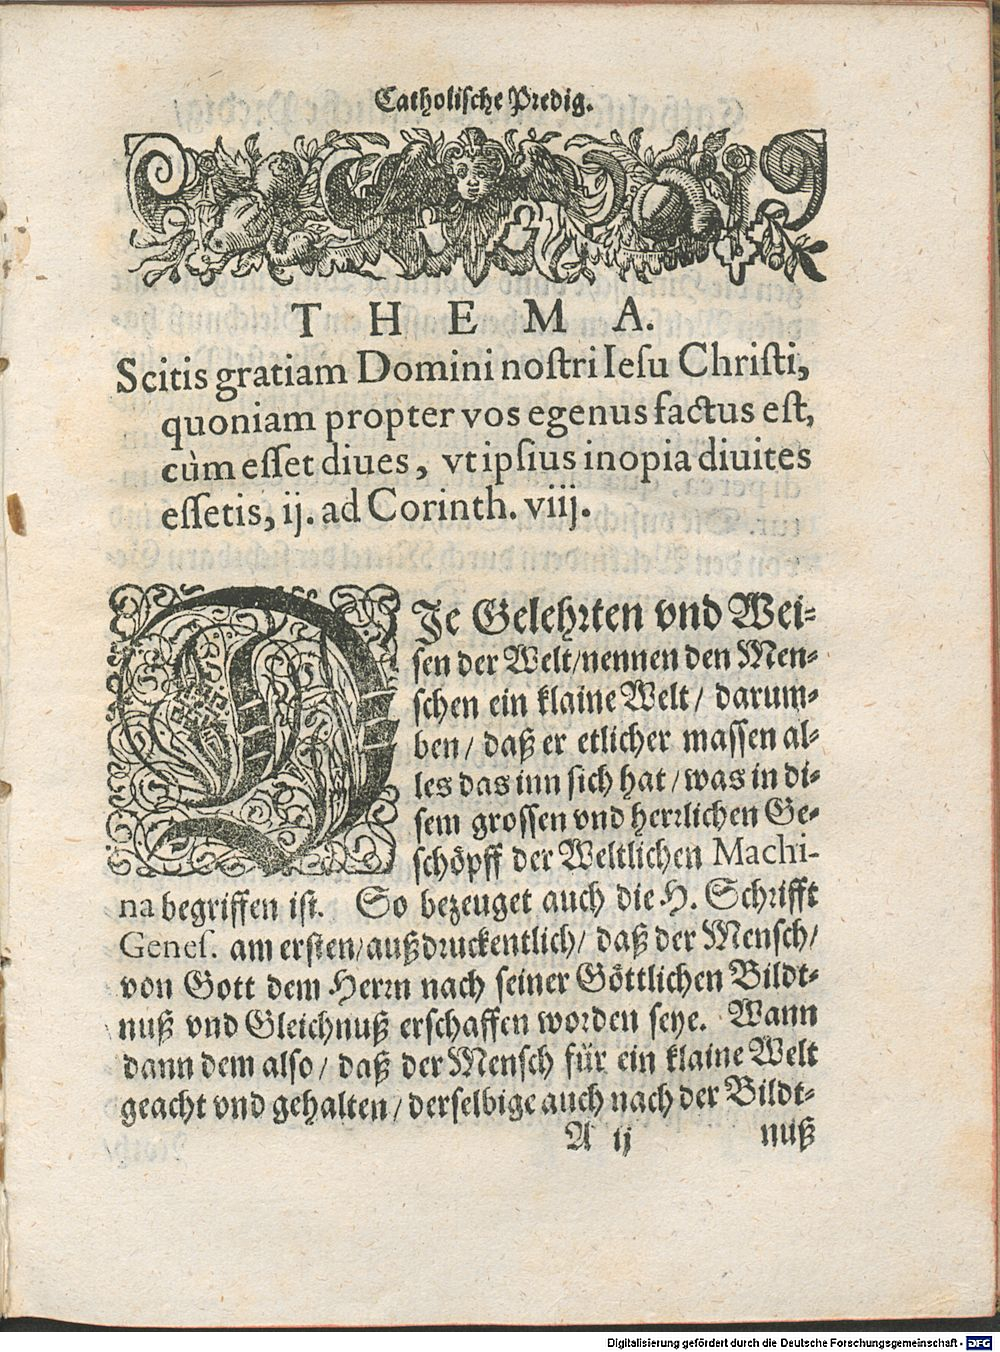 Catholiſche Predig.
THEMA.
Scitis gratiam Domini noſtri Ieſu Chriſti,
quoniam propter vos egenus factus eſt,
cùm eſſet diues, vt ipſius inopia diuites
eſſetis, ij. ad Corinth. viij.
DIe Gelehrten vnd Wei-
ſen der Welt/ nennen den Men-
ſchen ein klaine Welt/ darum-
ben/ daß er etlicher maſſen al-
les das inn ſich hat/ was in di-
ſem groſſen vnd herrlichen Ge-
ſchöpff der Weltlichen Machi-
na begriffen iſt. So bezeuget auch die H. Schrifft
Geneſ. am erſten/ außdruckentlich/ daß der Menſch/
von Gott dem Herrn nach ſeiner Göttlichen Bildt-
nuß vnd Gleichnuß erſchaffen worden ſeye. Wann
dann dem alſo/ daß der Menſch für ein klaine Welt
geacht vnd gehalten/ derſelbige auch nach der Bildt-
A ij nuß
Digitalisierung gefördert durch die Deutsche Forschungsgemeinschaft - DFG